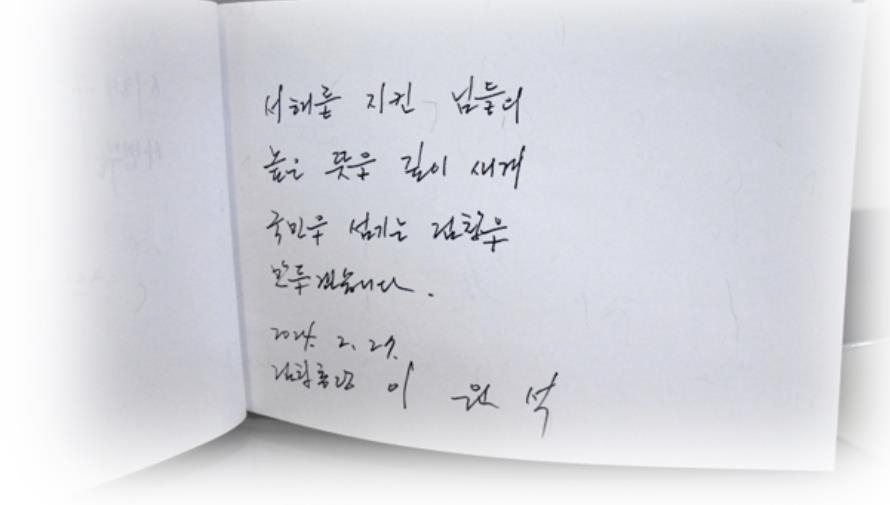 서해를 지킨 님들의
높은 뜻을 깊이 새겨
국민을 섬기는 검찰을
만들겠습니다.
2024. 2. 27.
검찰총장 이 원 석